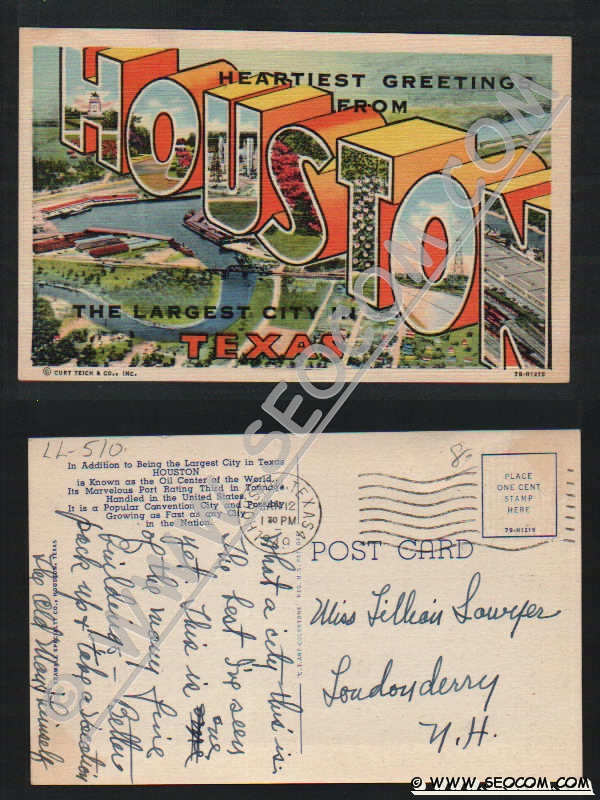 HEARTIEST GREETINGS
FROM
HOUSTON
THE LARGEST CITY IN
TEXAS
© CURT TEICH & CO., INC.
7B-H1215
WWW.SEOCOM.COM
LL-510.
8-
In Addition to Being the Largest City in Texas
HOUSTON
is Known as the Oil Center of the World.
Its Marvelous Port Rating Third in Tonnage
Handled in the United States.
It is a Popular Convention City and Possibly
Growing as Fast as any City
in the Nation.
HOUSTON, TEXAS
12
1 30 PM
PLACE
ONE CENT
STAMP
HERE
7B-H1215
POST CARD
What a city this is.
The best I've seen
yet. This is one
of the many fine
buildings - Better
pack up & take a vacation
The Old Man Himself
Miss Lillian Sawyer
Londonderry
N.H.
© WWW.SEOCOM.COM